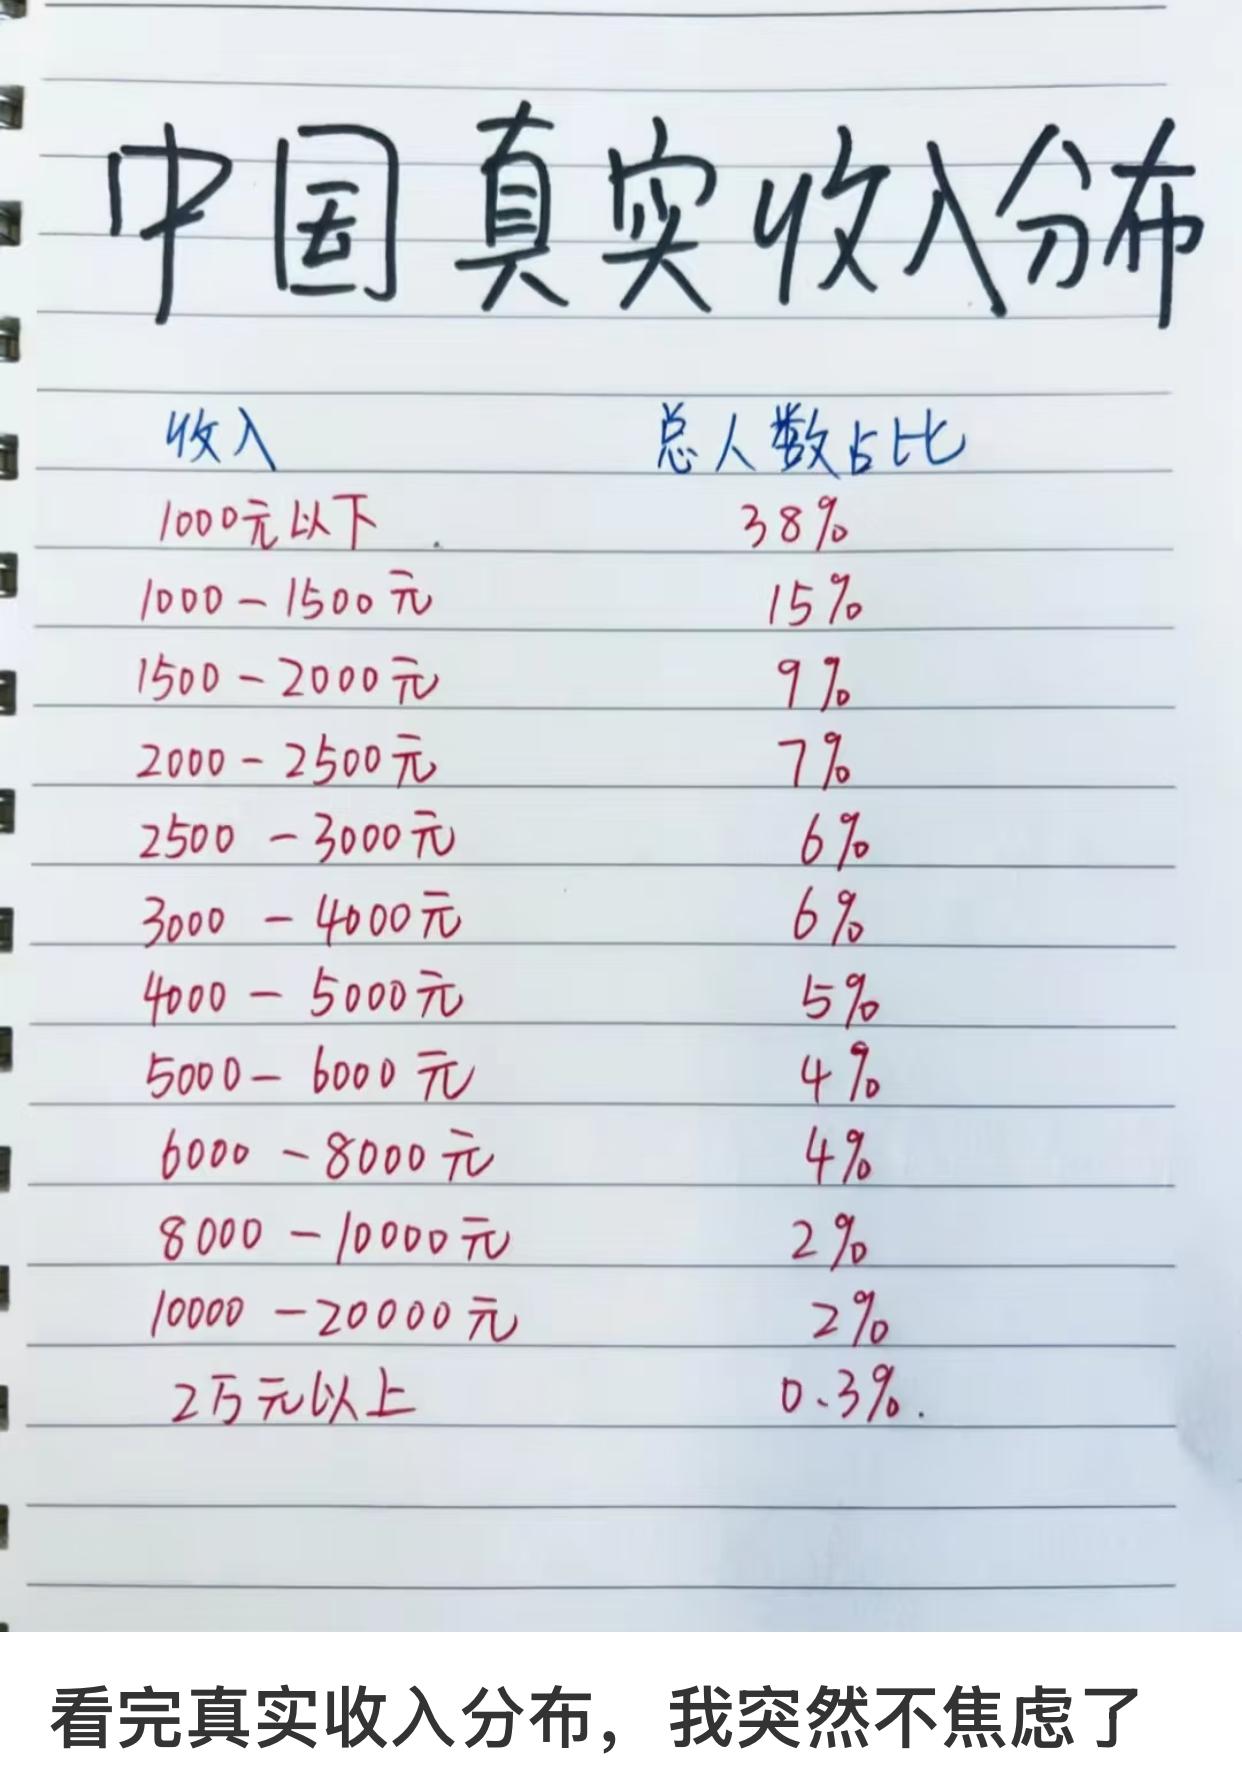 中国真实收入分布
收入 总人数占比
1000元以下 38%
1000-1500元 15%
1500-2000元 9%
2000-2500元 7%
2500-3000元 6%
3000-4000元 6%
4000-5000元 5%
5000-6000元 4%
6000-8000元 4%
8000-10000元 2%
10000-20000元 2%
2万元以上 0.3%.
看完真实收入分布，我突然不焦虑了